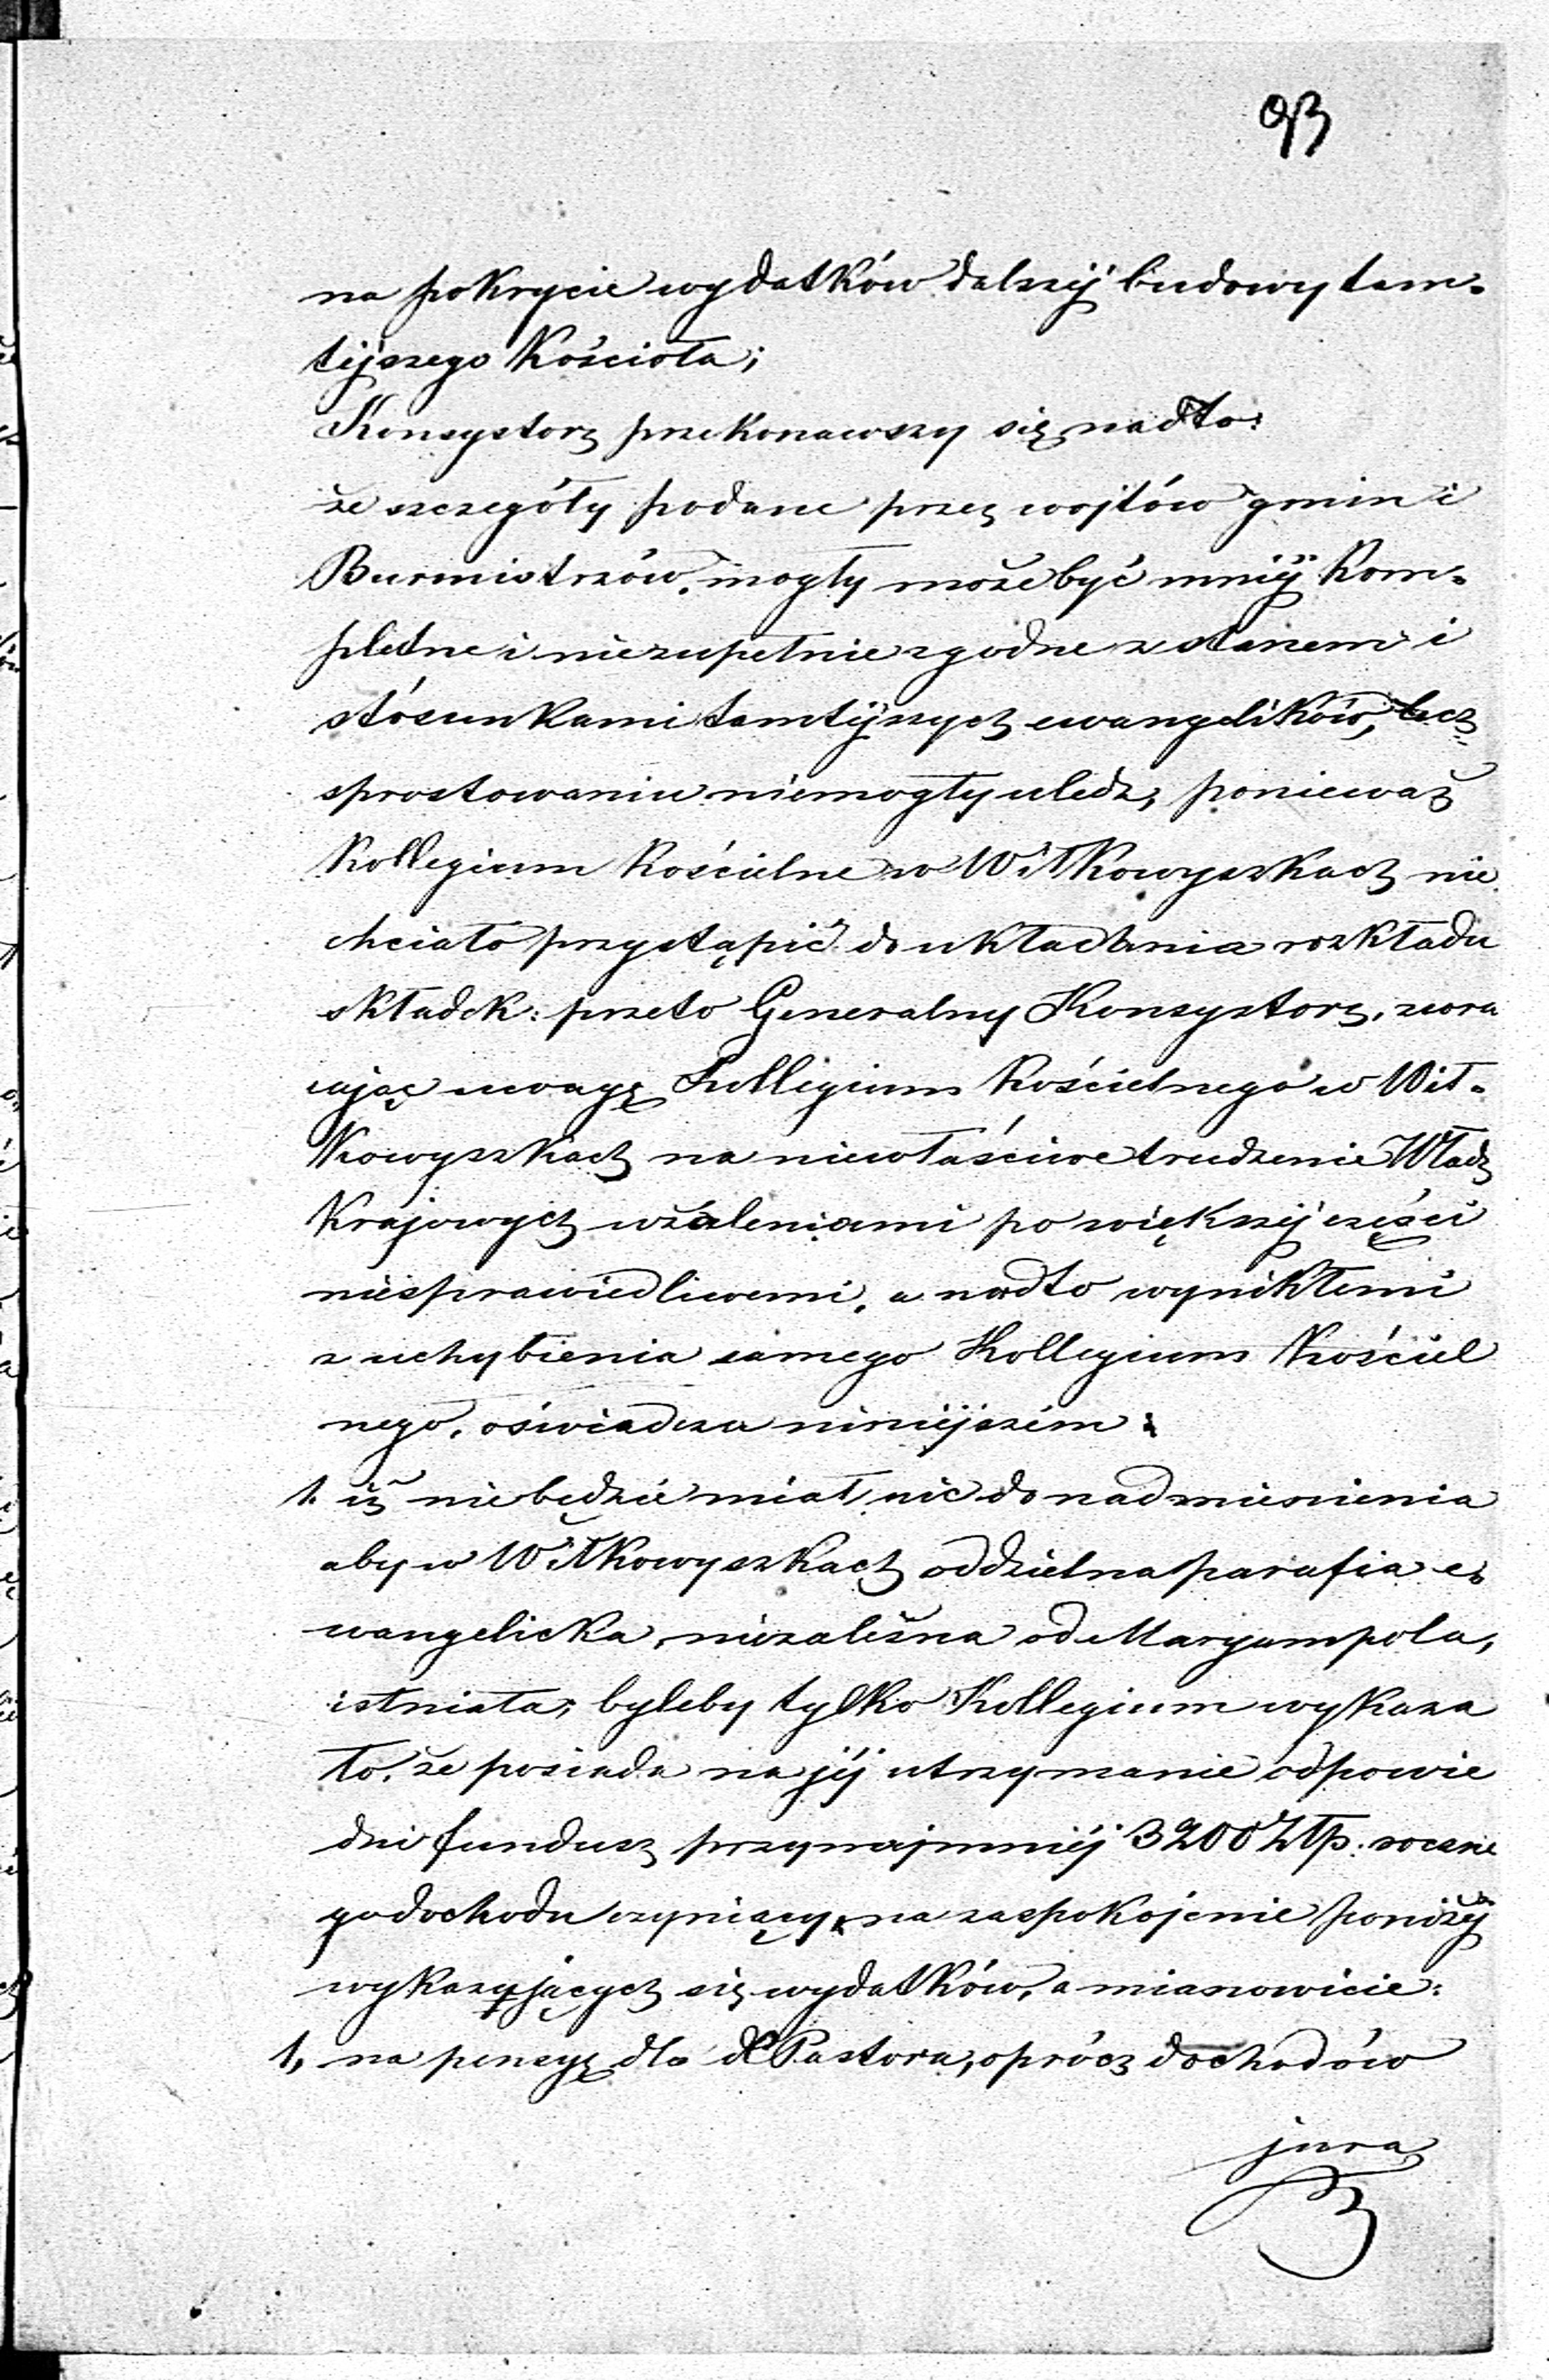 93
na pokrycie wydatków dalszéj budowy tam-
téjszego Kościoła;
Konsystorz przekonawszy się nadto:
że szczegóły podane przez wojtów gmin i
Burmistrzów, mogły może być mniéj kom-
pletne i niezupełnie zgodne z stanem i
stósunkami tamtéjszych ewangelików, lecz
sprostowaniu niemogły uledz, ponieważ
Kollegium Kościelne w Wiłkowyszkach nie
chciało przystąpić do układania rozkładu
składek: przeto Generalny Konsystorz, zwra
cając uwagę Kollegium Kościelnego w Wił-
kowyszkach na niewłaściwe trudzenie Władz
Krajowych użaleniami po większéj części
niesprawiedliwemi, a nadto wynikłemi
z uchybienia samego Kollegium Kościel
nego, oświadcza niniéjszém:
1. iż nie będzie miał nic do nadmienienia
aby w Wiłkowyszkach oddzielna parafia e-
wangelicka, niezależna od Maryampola,
istniała, byleby tylko Kollegium wykaza
ło, że posiada na jéj utrzymanie odpowie
dni fundusz przynajmniéj 3200 Złp. roczne
go dochodu czyniący, na zaspokojenie poniżéj
wykazujących się wydatków, a mianowicie:
1, na pensyę dla Pastora, oprócz dochodów
jura